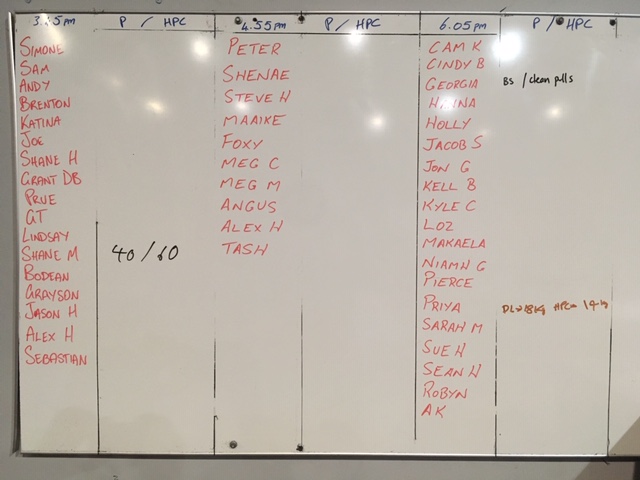 3.45pm P / HPC 4.55pm P / HPC 6.05pm P / HPC
SIMONE
SAM
ANDY
BRENTON
KATINA
JOE
SHANE H
GRANT DB
PRUE
GT
LINDSAY
SHANE M 40/60
BODEAN
GRAYSON
JASON H
ALEX H
SEBASTIAN
PETER
SHENAE
STEVE H
MAAIKE
FOXY
MEG C
MEG M
ANGUS
ALEX H
TASH
CAM K
CINDY B
GEORGIA BS / clean pulls
HOLLY
JACOB S
JON G
KELL B
KYLE C
LOZ
MAKAELA
NIAMH G
PIERCE
PRIYA
SARAH M
SUE H
SEAN H
ROBYN
AK